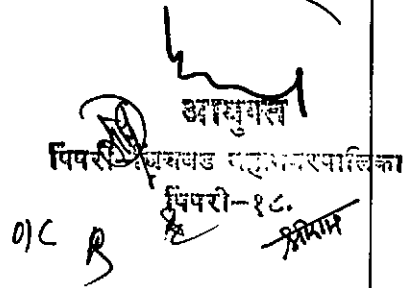 आयुक्त
पिंपरी-चिंचवड महानगरपालिका
पिंपरी-१८.
O/C